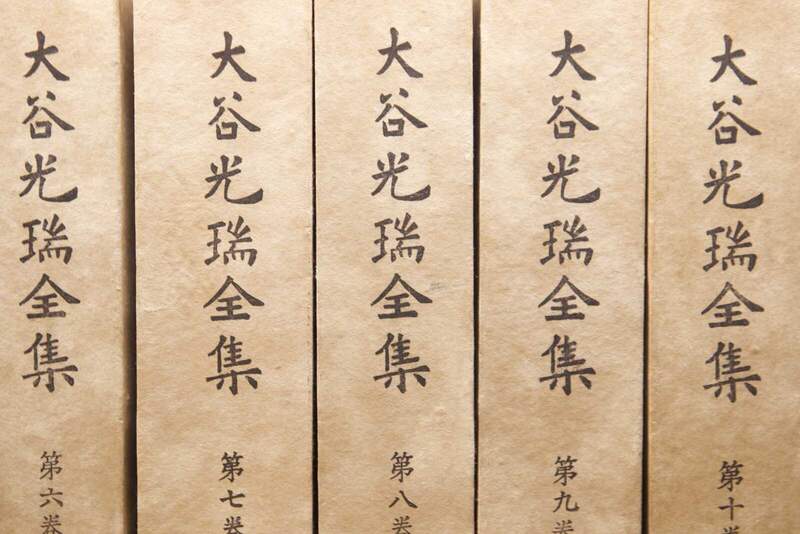 大谷光瑞全集
第六卷
大谷光瑞全集
第七卷
大谷光瑞全集
第八卷
大谷光瑞全集
第九卷
大谷光瑞全集
第十卷